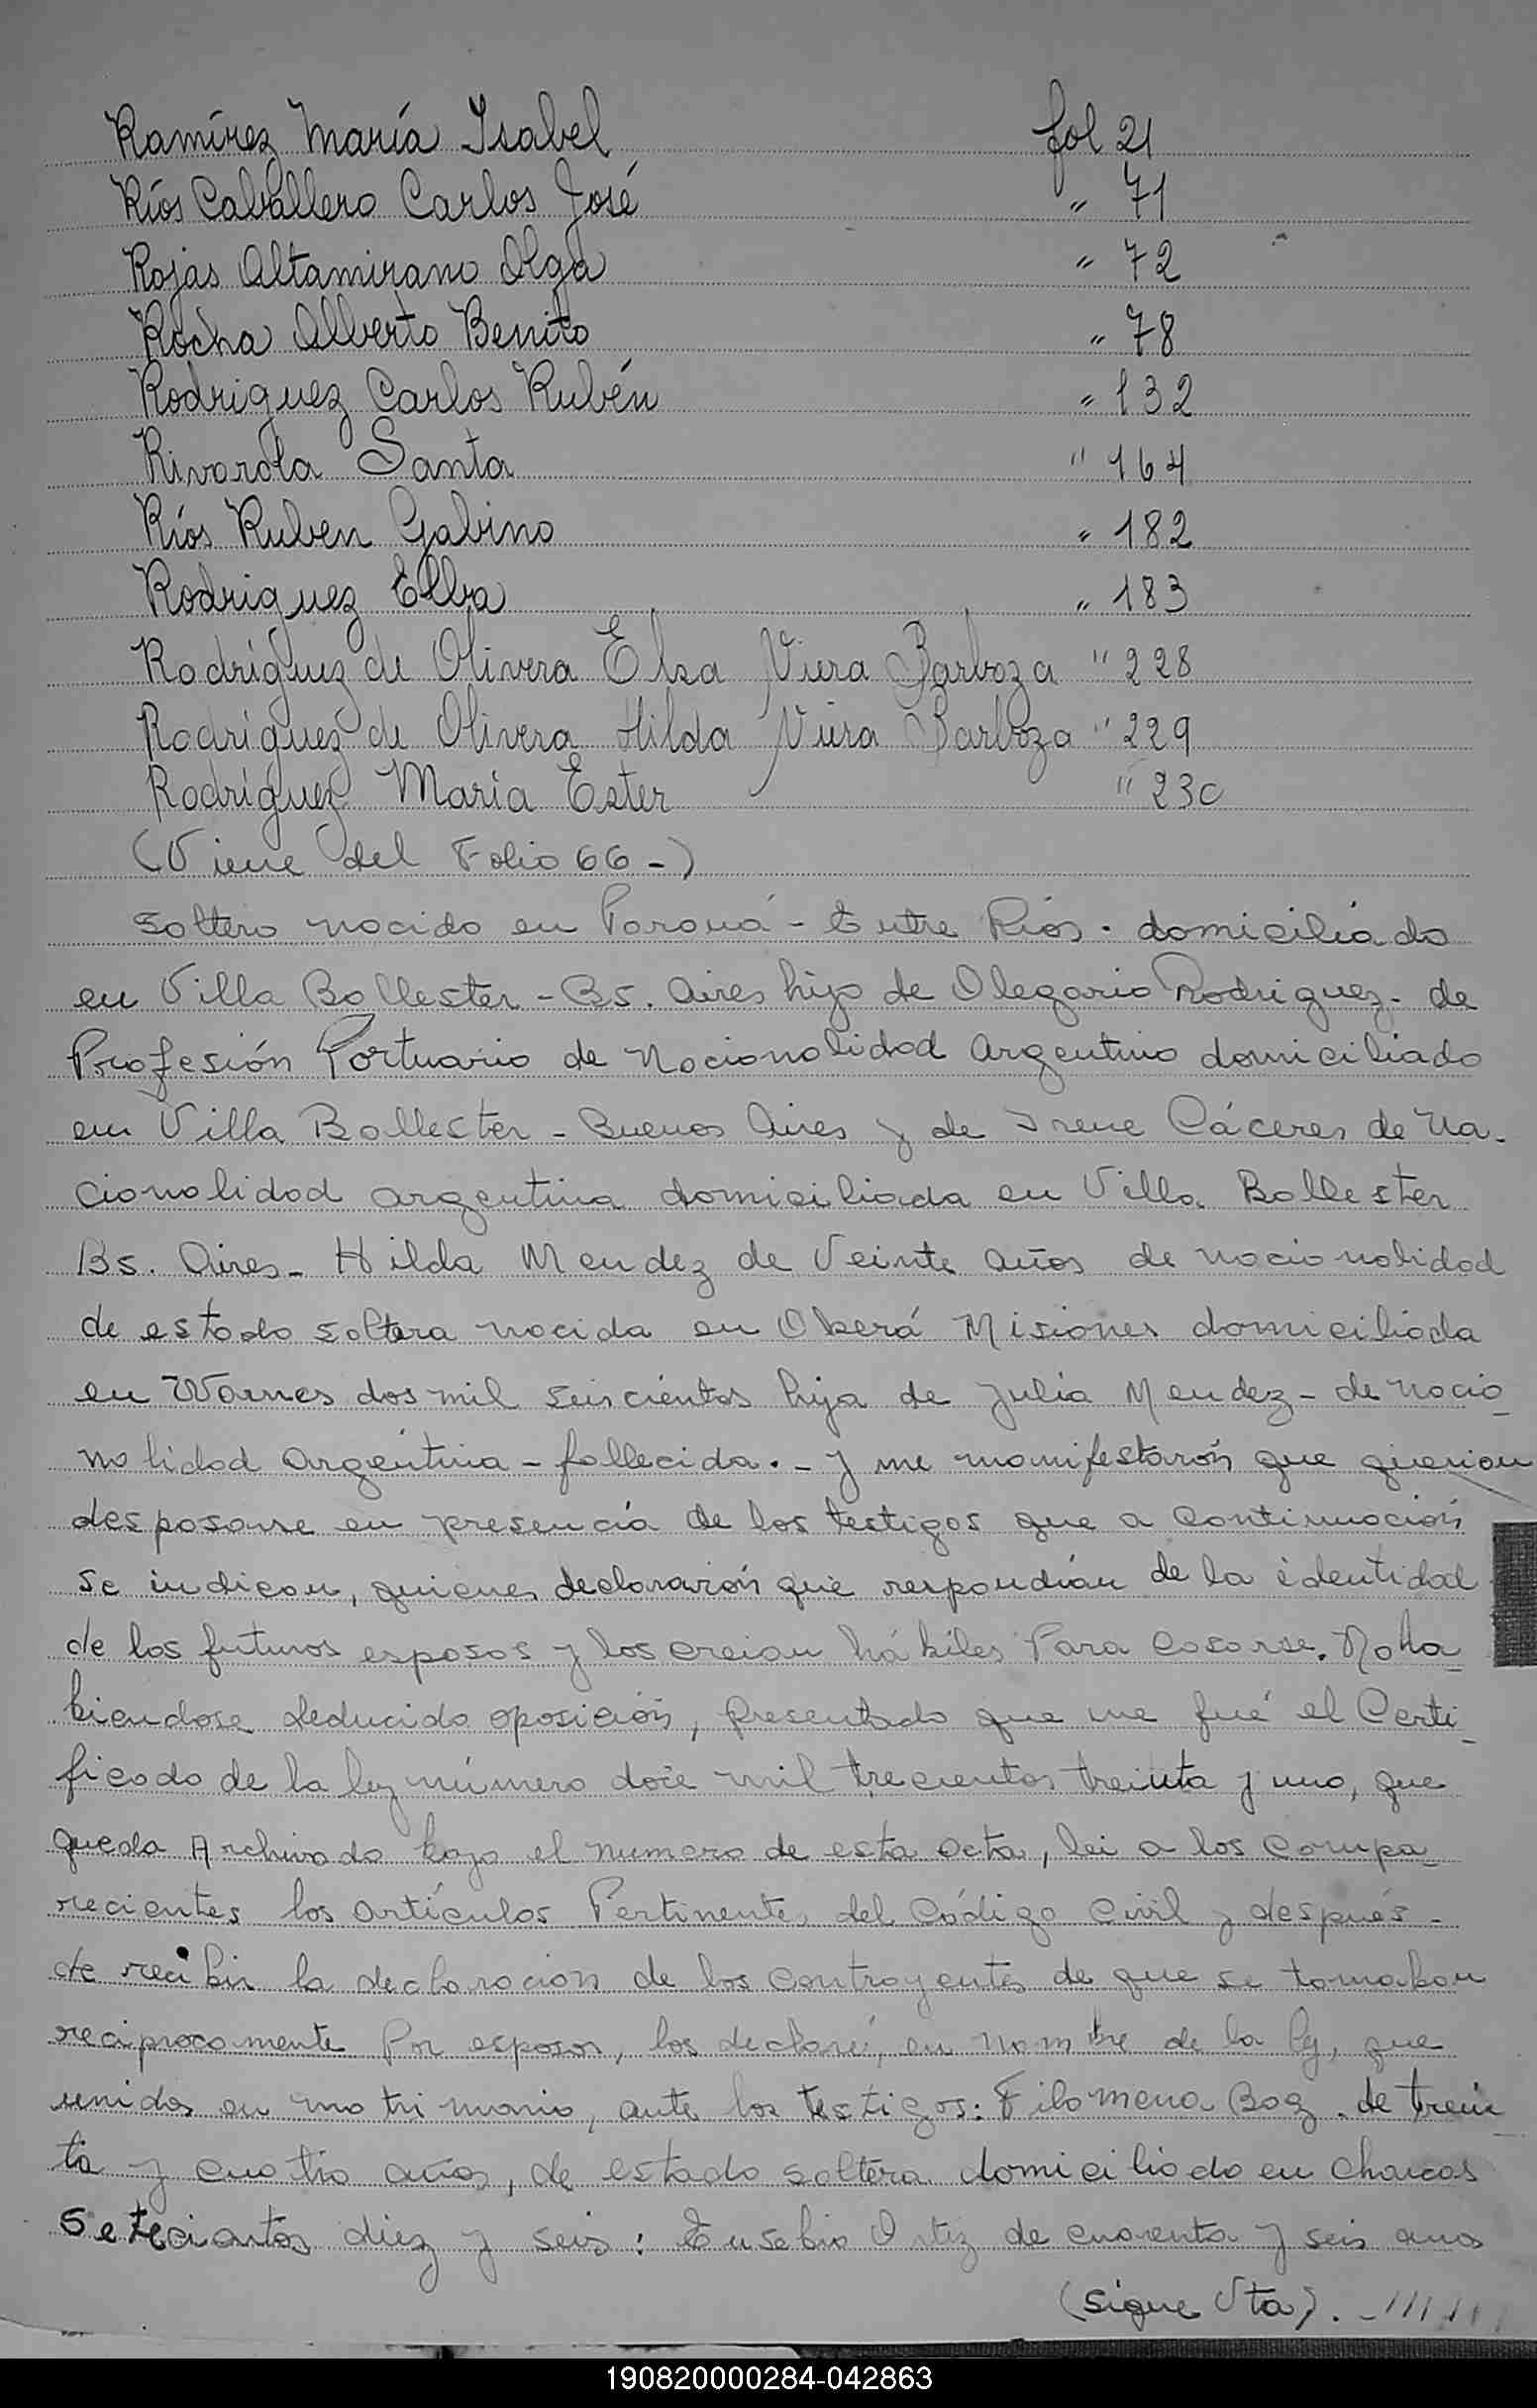 Ramírez María Isabel fol 21
Ríos Caballero Carlos José " 71
Rojas Altamirano Olga " 72
Rocha Alberto Benito " 78
Rodriguez Carlos Rubén " 132
Rivarola Santa " 164
Ríos Ruben Gabino " 182
Rodriguez Elba " 183
Rodríguez de Olivera Elsa Viera Barboza " 228
Rodríguez de Olivera Hilda Viera Barboza " 229
Rodríguez María Ester " 230
(Viene del Folio 66-)
soltero nacido en Paraná - Entre Ríos. domiciliado
en Villa Ballester - Bs. Aires hijo de Olegario Rodriguez - de
Profesión Portuario de Nacionalidad Argentino domiciliado
en Villa Ballester - Buenos Aires y de Irene Cáceres de Na-
cionalidad argentina domiciliada en Villa Ballester
Bs. Aires - Hilda Mendez de Veinte años de nacionalidad
de estado soltera nacida en Oberá Misiones domiciliada
en Warnes dos mil seiscientos hija de Julia Mendez - de nacio_
nalidad Argentina - fallecida. - y me manifestarón que querian
desposarse en presencia de los testigos que a continuación
se indican, quienes declararón que respondían de la identidad
de los futuros esposos y los creian hábiles Para casarse. No ha_
biendose deducido oposición, presentado que me fué el Certi_
ficado de la ley número doce mil trecientos treinta y uno, que
queda Archivado bajo el numero de esta acta, lei a los compa_
recientes los artículos Pertinentes del Código Civil y después -
de recibir la declaración de los contrayentes de que se tomaban
reciprocamente Por esposos, los declaré, en nombre de la ley, que
unidos en matrimonio, ante los testigos: Filomena Boz. de trein_
ta y cuatro años, de estado soltera domiciliado en Charcas
Setecientos diez y seis: Eusebio Ortiz de cuarenta y seis anos
(sigue Vta). - /////
190820000284-042863